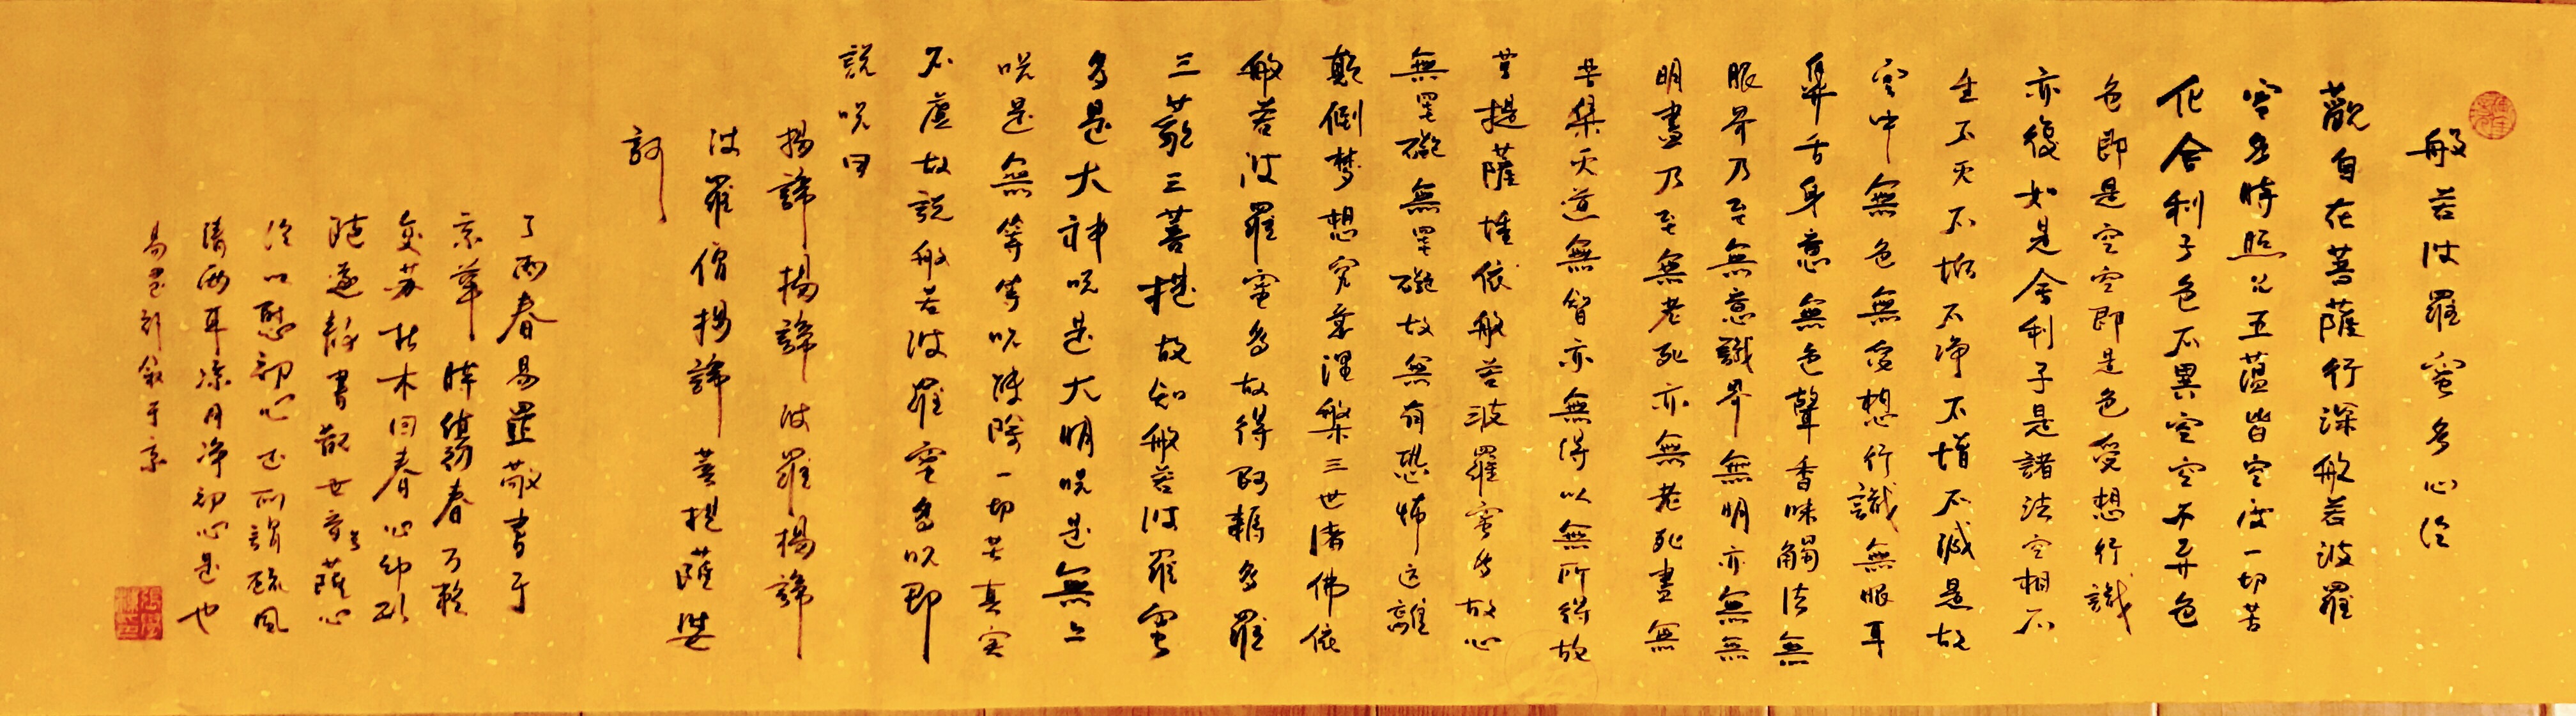 般若波羅蜜多心经
觀自在菩薩行深般若波羅
蜜多時照见五蕴皆空度一切苦
厄舍利子色不異空空不异色
色即是空空即是色受想行識
亦復如是舍利子是諸法空相不
生不灭不垢不净不增不减是故
空中無色無受想行識無眼耳
鼻舌身意無色聲香味觸法無
眼界乃至無意識界無明亦無無
明盡乃至無老死亦無老死盡無
苦集灭道無智亦無得以無所得故
菩提薩埵依般若波羅蜜多故心
無罣礙無罣礙故無有恐怖远離
顛倒梦想究竟涅槃三世諸佛依
般若波羅蜜多故得阿耨多羅
三藐三菩提故知般若波羅蜜
多是大神咒是大明咒是無上
咒是無等等咒能除一切苦真实
不虛故説般若波羅蜜多咒即
説咒曰
揭諦揭諦波羅揭諦
波羅僧揭諦菩提薩婆
訶
丁酉春易罡敬書于
京華時值初春万
苏枯木回春心
随遂静書觀世音菩薩心
经以慰初心正所謂疏風
清酒耳凉月净初心是也
易叙于京